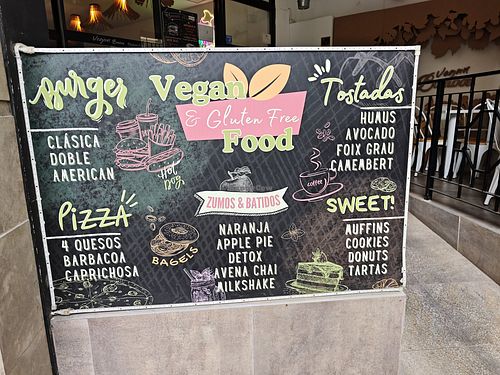 Burger
CLÁSICA
DOBLE
AMERICAN
Hot
Dog
Vegan
& Gluten Free
Food
Tostadas
HUMUS
AVOCADO
FOIX GRAU
CAMEMBERT
coffee
PIZZA
4 QUESOS
BARBACOA
CAPRICHOSA
BAGELS
ZUMOS & BATIDOS
NARANJA
APPLE PIE
DETOX
AVENA CHAI
MILKSHAKE
SWEET!
MUFFINS
COOKIES
DONUTS
TARTAS